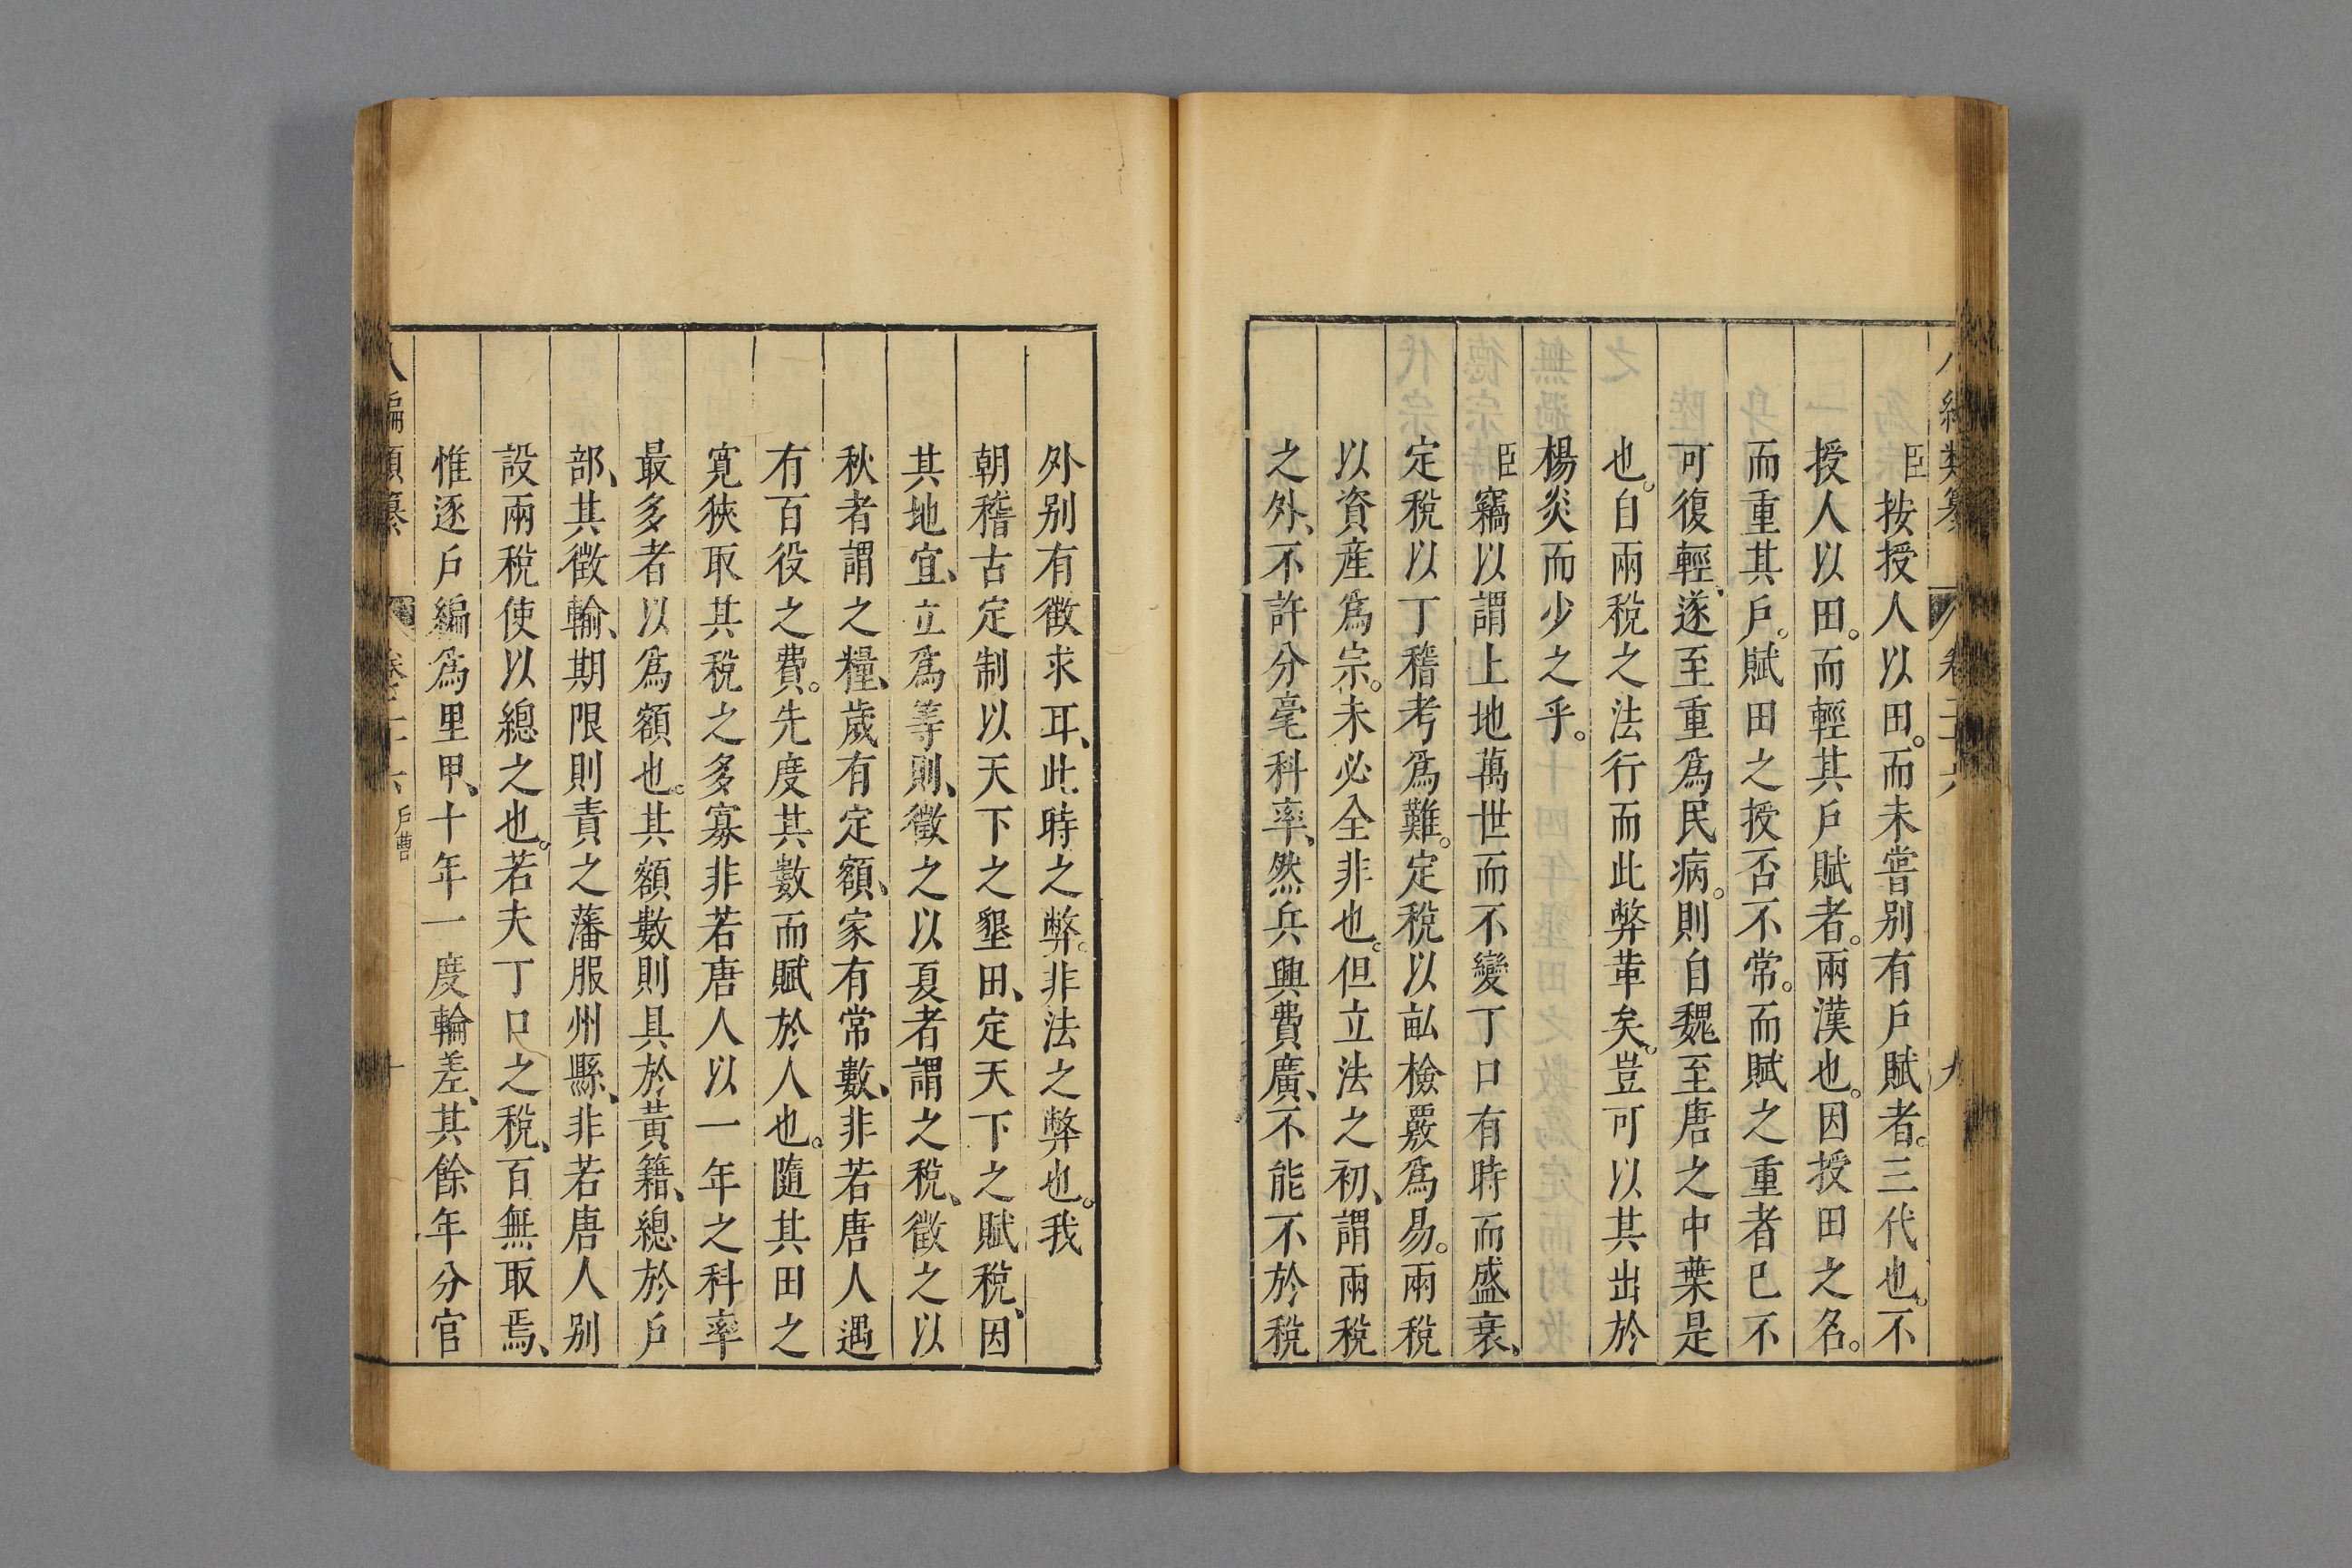 八編類纂 卷二十六 九
臣按授人以田。而未嘗别有戶賦者。三代也。不
授人以田。而輕其戶賦者。兩漢也。因授田之名。
而重其戶。賦田之授否不常。而賦之重者已不
可復輕、遂至重爲民病。則自魏至唐之中葉是
也。自兩稅之法行而此弊革矣。豈可以其出於
楊炎而少之乎。
臣竊以謂土地萬世而不變丁口有時而盛衰、
定稅以丁稽考爲難。定稅以畝檢覈爲易。兩稅
以資産爲宗。未必全非也。但立法之初、謂兩稅
之外、不許分毫科率、然兵興費廣、不能不於稅
外别有徵求耳、此時之弊。非法之弊也。我
朝稽古定制以天下之墾田、定天下之賦稅、因
其地宜、立爲等則、徵之以夏者謂之稅、徵之以
秋者謂之糧、歲有定額、家有常數、非若唐人遇
有百役之費。先度其數而賦於人也。隨其田之
寛狹取其稅之多寡非若唐人以一年之科率
最多者以爲額也。其額數則具於黃籍、總於戶
部、其徵輸、期限則責之藩服州縣、非若唐人别
設兩稅使以總之也。若夫丁口之稅、百無取焉、
惟逐戶編爲里甲、十年一度輪差、其餘年分官
八編類纂 卷二十六 戶曹 十